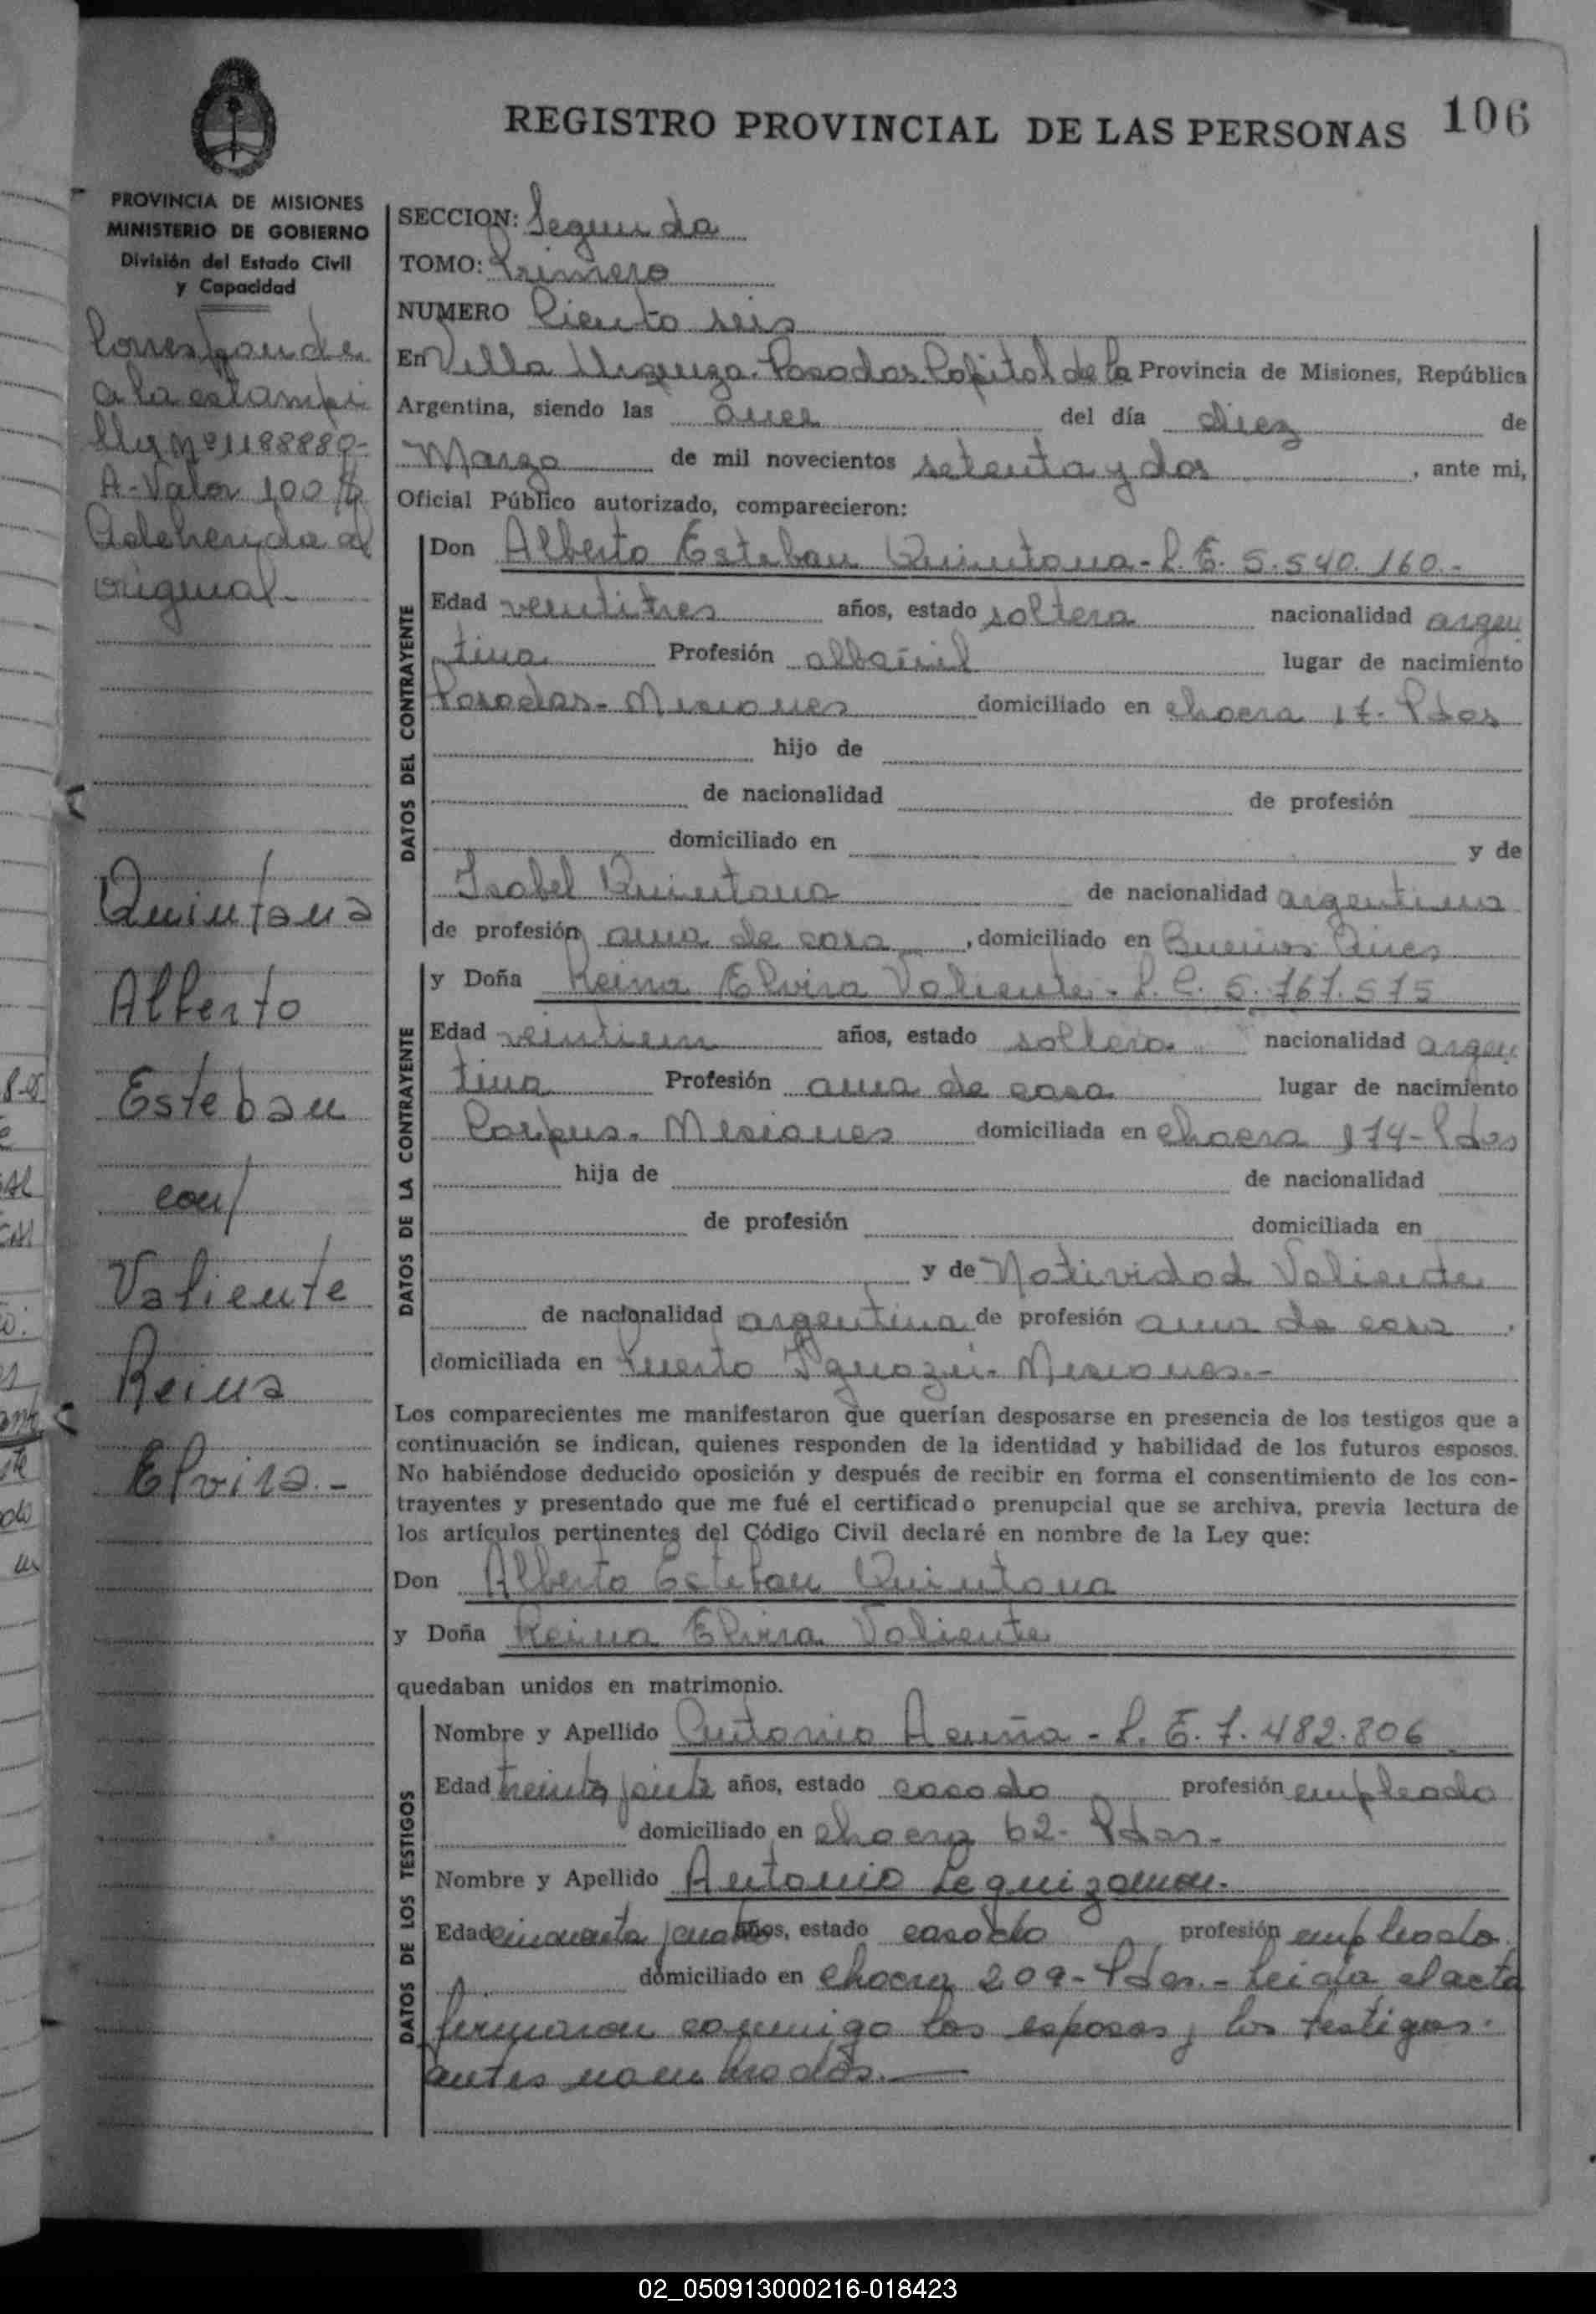 REGISTRO PROVINCIAL DE LAS PERSONAS 106
PROVINCIA DE MISIONES
MINISTERIO DE GOBIERNO
División del Estado Civil
y Capacidad
Corresponde
a la estampi
lla Nº 1188880-
A-Valor 100 $
Adherida al
original-
Quintana
Alberto
Esteban
con/
Valiente
Reina
Elvira.-
SECCION: Segunda
TOMO: Primero
NUMERO Ciento seis
En Villa Urquiza-Posadas Capital de la Provincia de Misiones, República
Argentina, siendo las once del día diez de
Marzo de mil novecientos setenta y dos, ante mi,
Oficial Público autorizado, comparecieron:
DATOS DEL CONTRAYENTE
Don Alberto Esteban Quintana-L.E. 5.540.160.-
Edad veintitres años, estado soltero nacionalidad argen
tina Profesión albañil lugar de nacimiento
Posadas-Misiones domiciliado en chacra 17-Pdas
hijo de
de nacionalidad de profesión
domiciliado en y de
Isabel Quintana de nacionalidad argentina
de profesión ama de casa, domiciliado en Buenos Aires
DATOS DE LA CONTRAYENTE
y Doña Reina Elvira Valiente-L.C. 6.767.575
Edad veintiun años, estado soltera nacionalidad argen
tina Profesión ama de casa lugar de nacimiento
Corpus-Misiones domiciliada en chacra 174-Pdas
hija de de nacionalidad
de profesión domiciliada en
y de Natividad Valiente
de nacionalidad argentina de profesión ama de casa,
domiciliada en Puerto Iguazú-Misiones.-
Los comparecientes me manifestaron que querían desposarse en presencia de los testigos que a
continuación se indican, quienes responden de la identidad y habilidad de los futuros esposos.
No habiéndose deducido oposición y después de recibir en forma el consentimiento de los con-
trayentes y presentado que me fué el certificado prenupcial que se archiva, previa lectura de
los artículos pertinentes del Código Civil declaré en nombre de la Ley que:
Don Alberto Esteban Quintana
y Doña Reina Elvira Valiente
quedaban unidos en matrimonio.
DATOS DE LOS TESTIGOS
Nombre y Apellido Antonio Acuña-L.E. 7.482.806
Edad treinta años, estado casado profesión empleado
domiciliado en chacra 62-Pdas.-
Nombre y Apellido Antonio Leguizamon.-
Edad cincuenta y cuatro años, estado casado profesión empleado
domiciliado en chacra 209-Pdas.-Leida el acta
firmaron conmigo los esposos y los testigos
antes nombrados.-
02_050913000216-018423